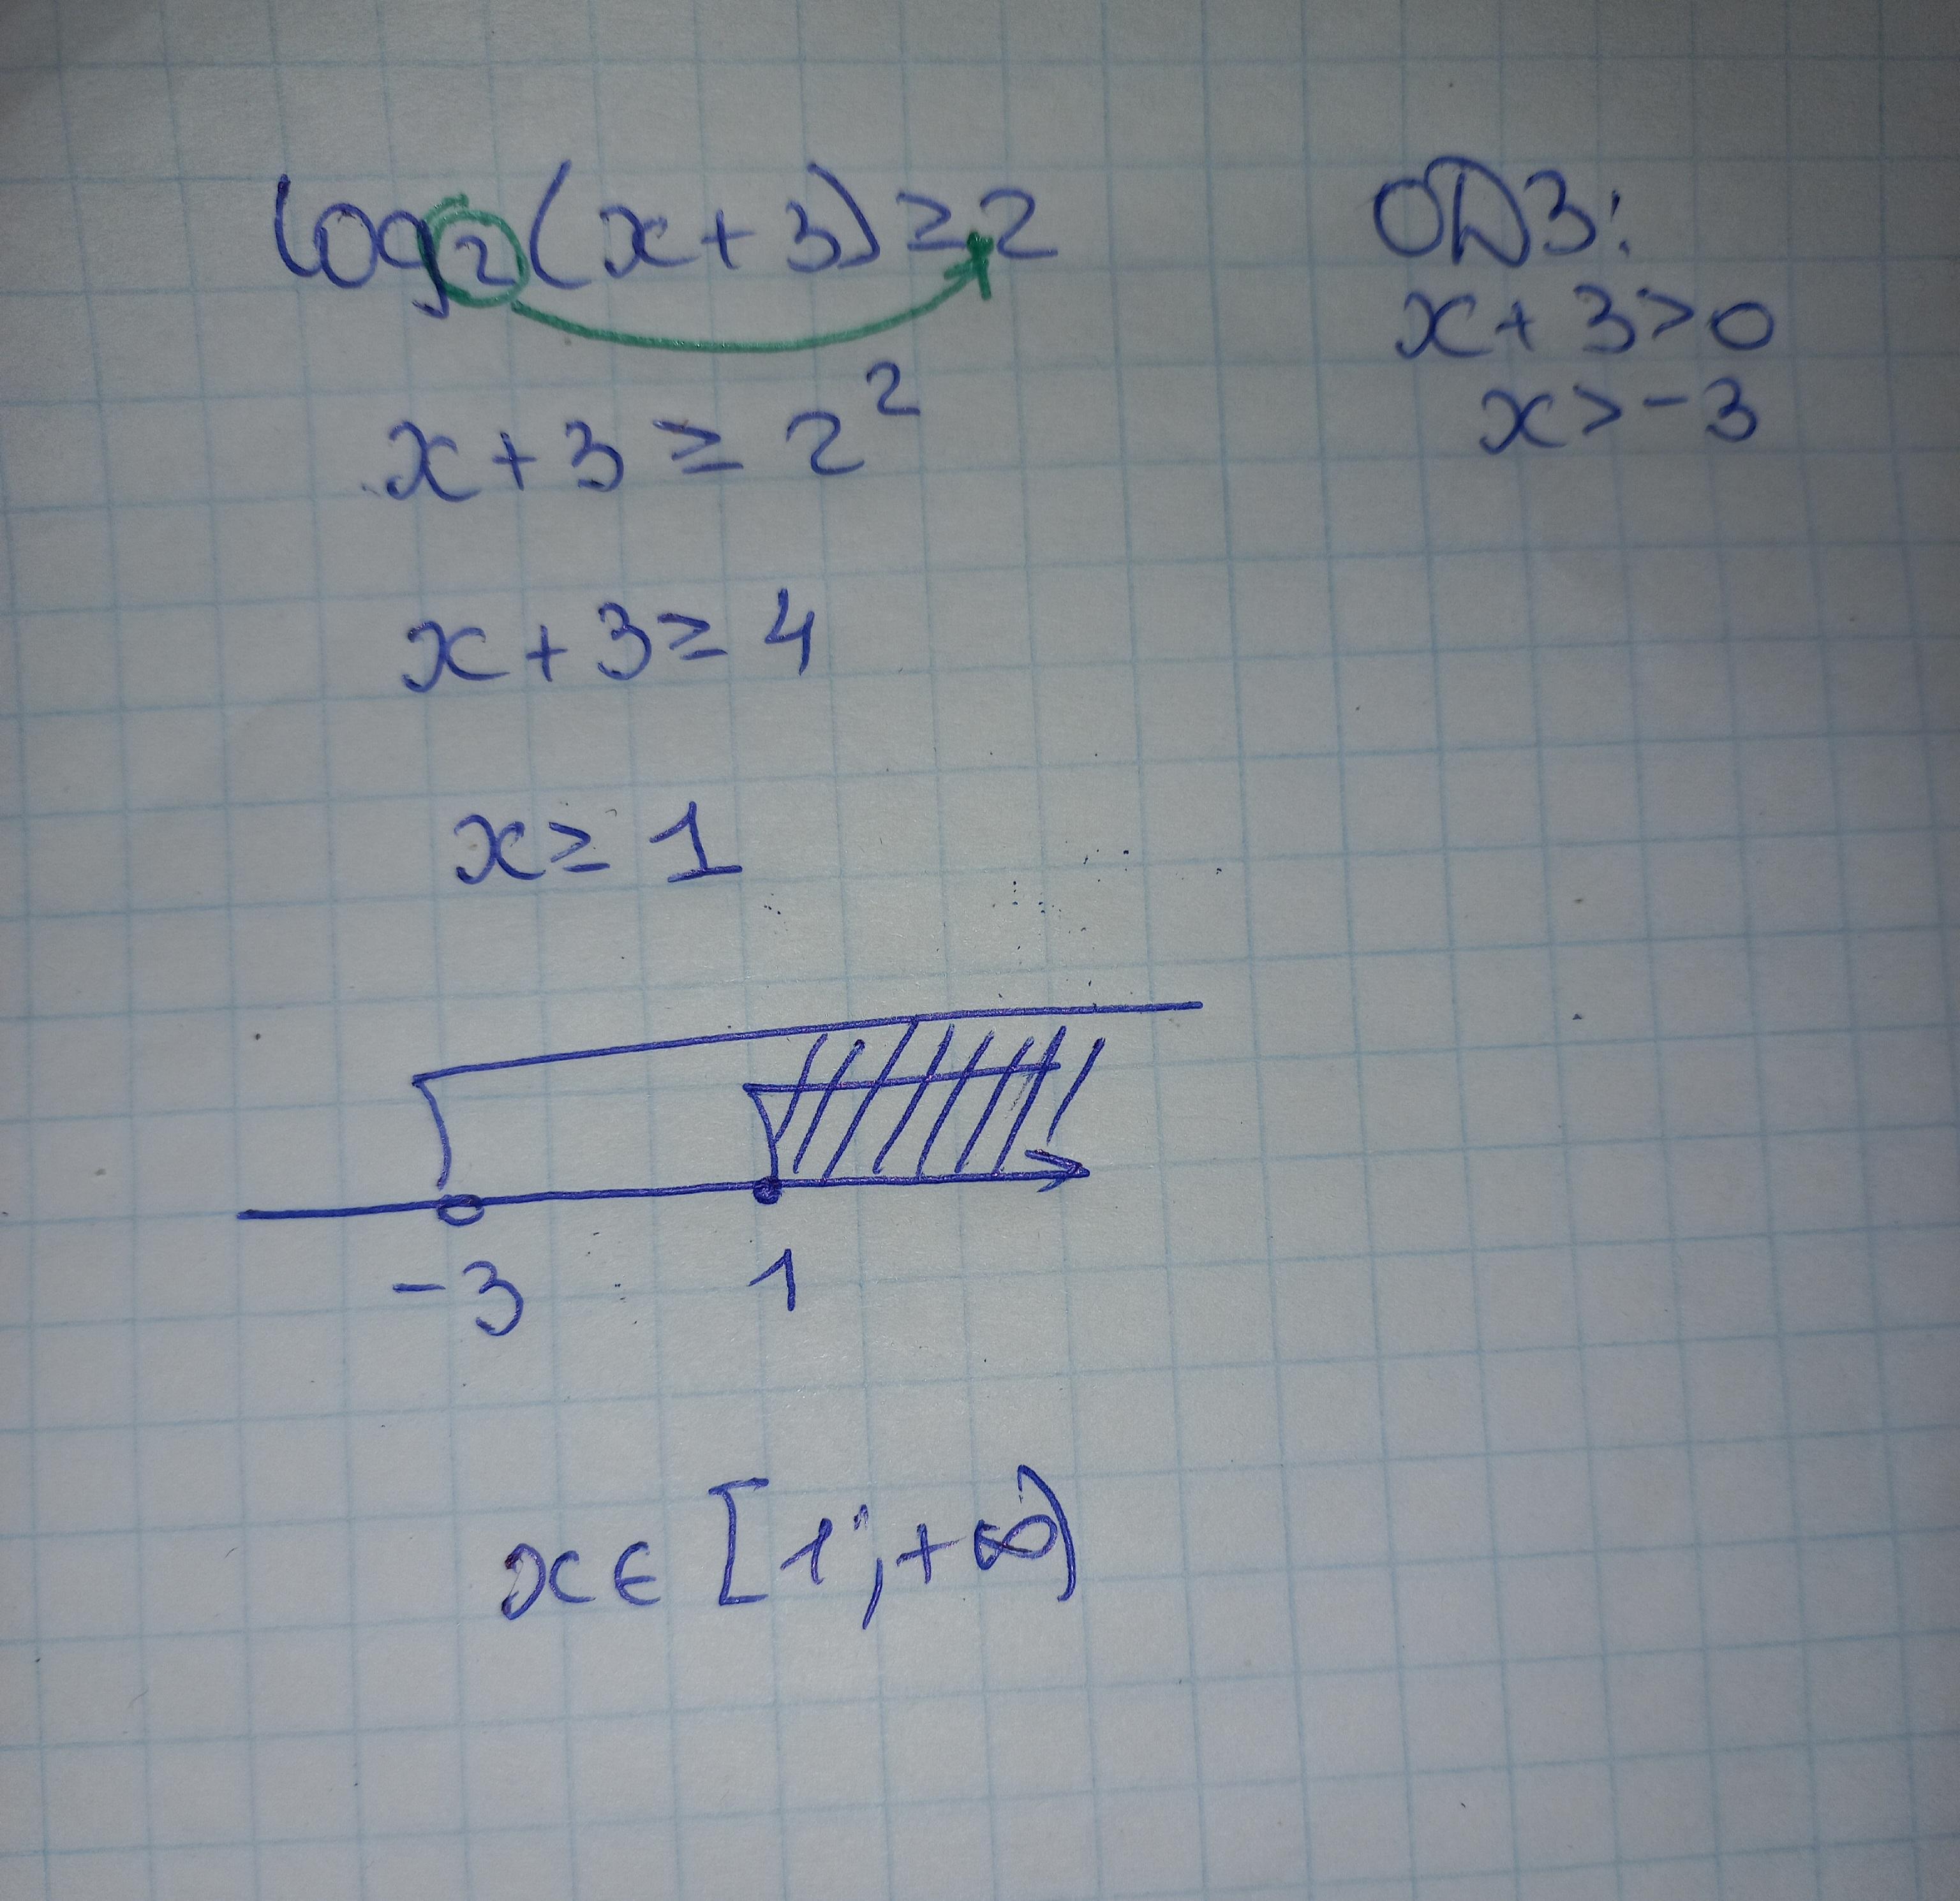 log₂(x+3)≥2
ОДЗ:
x+3>0
x>-3
x+3≥2²
x+3≥4
x≥1
-3 1
x∈[1;+∞)